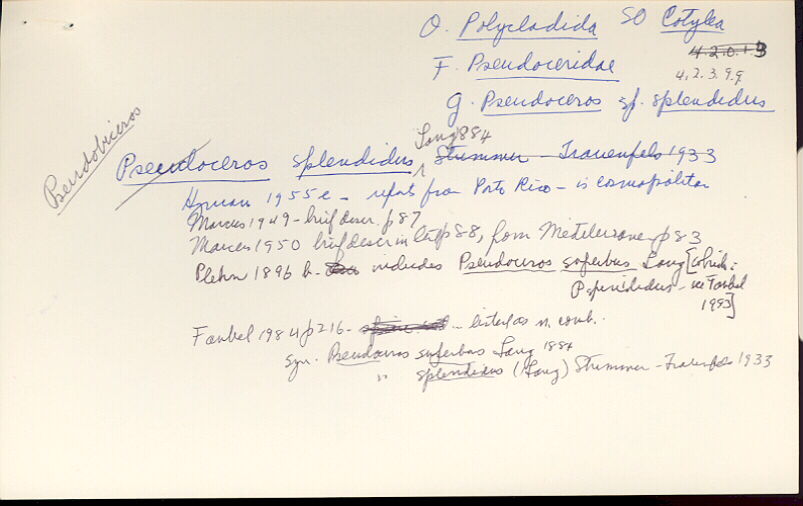 O. Polycladida SO Cotylea
4.2.0.13
F. Pseudoceridae 4.2.3.9.9
G. Pseudoceros sp. splendidus
Pseudobiceros
Lang 1884
Pseudoceros splendidus Stummer-Trauenfels 1933
Hyman 1955c - repts from Porto Rico - is cosmopolitan
Marcus 1949 - brief descr. p 87
Marcus 1950 brief descr in p 88, from Mediterranean p 83
Plehn 1896 b - includes Pseudoceros superbus Lang [which =
P. splendidus - see Faubel
1983]
Faubel 1984 p 216 - - listed as n. comb.
Syn. Pseudoceros superbus Lang 1884
" splendidus (Lang) Stummer-Trauenfels 1933